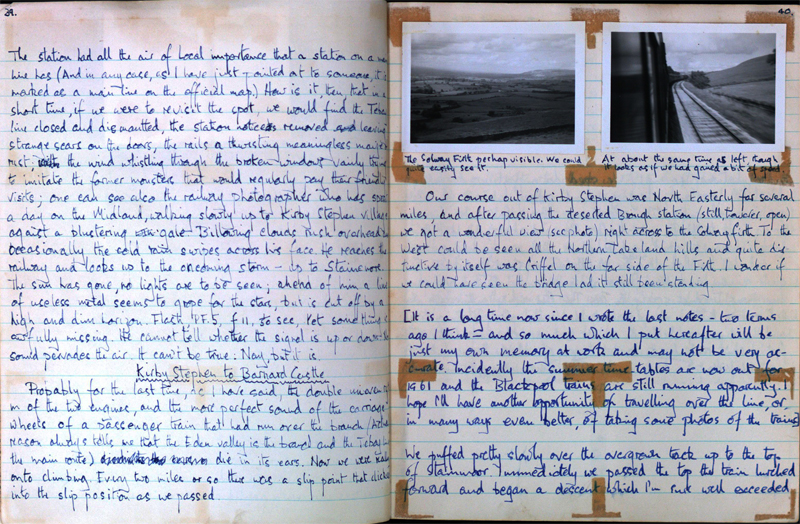 39.
The station had all the air of local importance that a station on a main
line has (And in any case, as I have just pointed out to someone, it is
marked as a main line on the official map.) How is it, then, that in a
short time, if we were to revisit the spot, we would find the Tebay
line closed and dismantled, the station notices removed and leaving
strange scars on the doors, the rails a twisting meaningless maze of
rust, the wind whistling through the broken windows vainly trying
to imitate the former monsters that would regularly pay their friendly
visits; one can see also the railway photographer who has spent
a day on the Midland, walking slowly up to Kirby Stephen village
against a blustering gale. Billowing clouds rush overhead and
occasionally the cold rain swipes across his face. He reaches the
railway and looks up to the oncoming storm - up to Stainmore.
The sun has gone, no lights are to be seen; ahead of him a line
of useless metal seems to grope for the stars, but is cut off by a
high and dim horizon. Flash, f.5, f 11, 50 sec, Yet something is
awfully missing. He cannot tell whether the signal is up or down. No
sound pervades the air. It can't be true. Nay, but it is.
Kirby Stephen to Barnard Castle
Probably for the last time, as I have said, the double
of the two engines, and the most perfect sound of the carriage
wheels of a passenger train that had run over the branch (
reason always tells me that the Eden valley is the branch and the Tebay line
the main route) die in its ears. Now we were
onto climbing. Every two miles or so there was a slip point that clicked
into the slip position as we passed.
40.
The Solway Firth perhaps visible. We could
quite easily see it.
At about the same time as left though
it looks as if we had gained a bit of speed
Our course out of Kirby Stephen was North Easterly for several
miles, and after passing the deserted Brough station (still, however, open)
we got a wonderful view (see photo) right across to the Solway firth. To the
west could be seen all the Northern Lakeland hills and quite dis-
tinctive by itself was Criffel on the far side of the Firth. I wonder if
we could have seen the bridge had it still been standing.
[It is a long time now since I wrote the last notes - two terms
ago I think - and so much which I put hereafter will be
just my own memory at work and may not be very ac-
curate. Incidently the summer time tables are now out for
1961 and the Blackpool trains are still running apparently. I
hope I'll have another opportunity of travelling over the line, or
in many ways even better, of taking some photos of the trains]
We puffed pretty slowly over the overgrown track up to the top
of Stainmoor. Immediately we passed the top the train lurched
forward and began a descent which I'm sure well exceeded